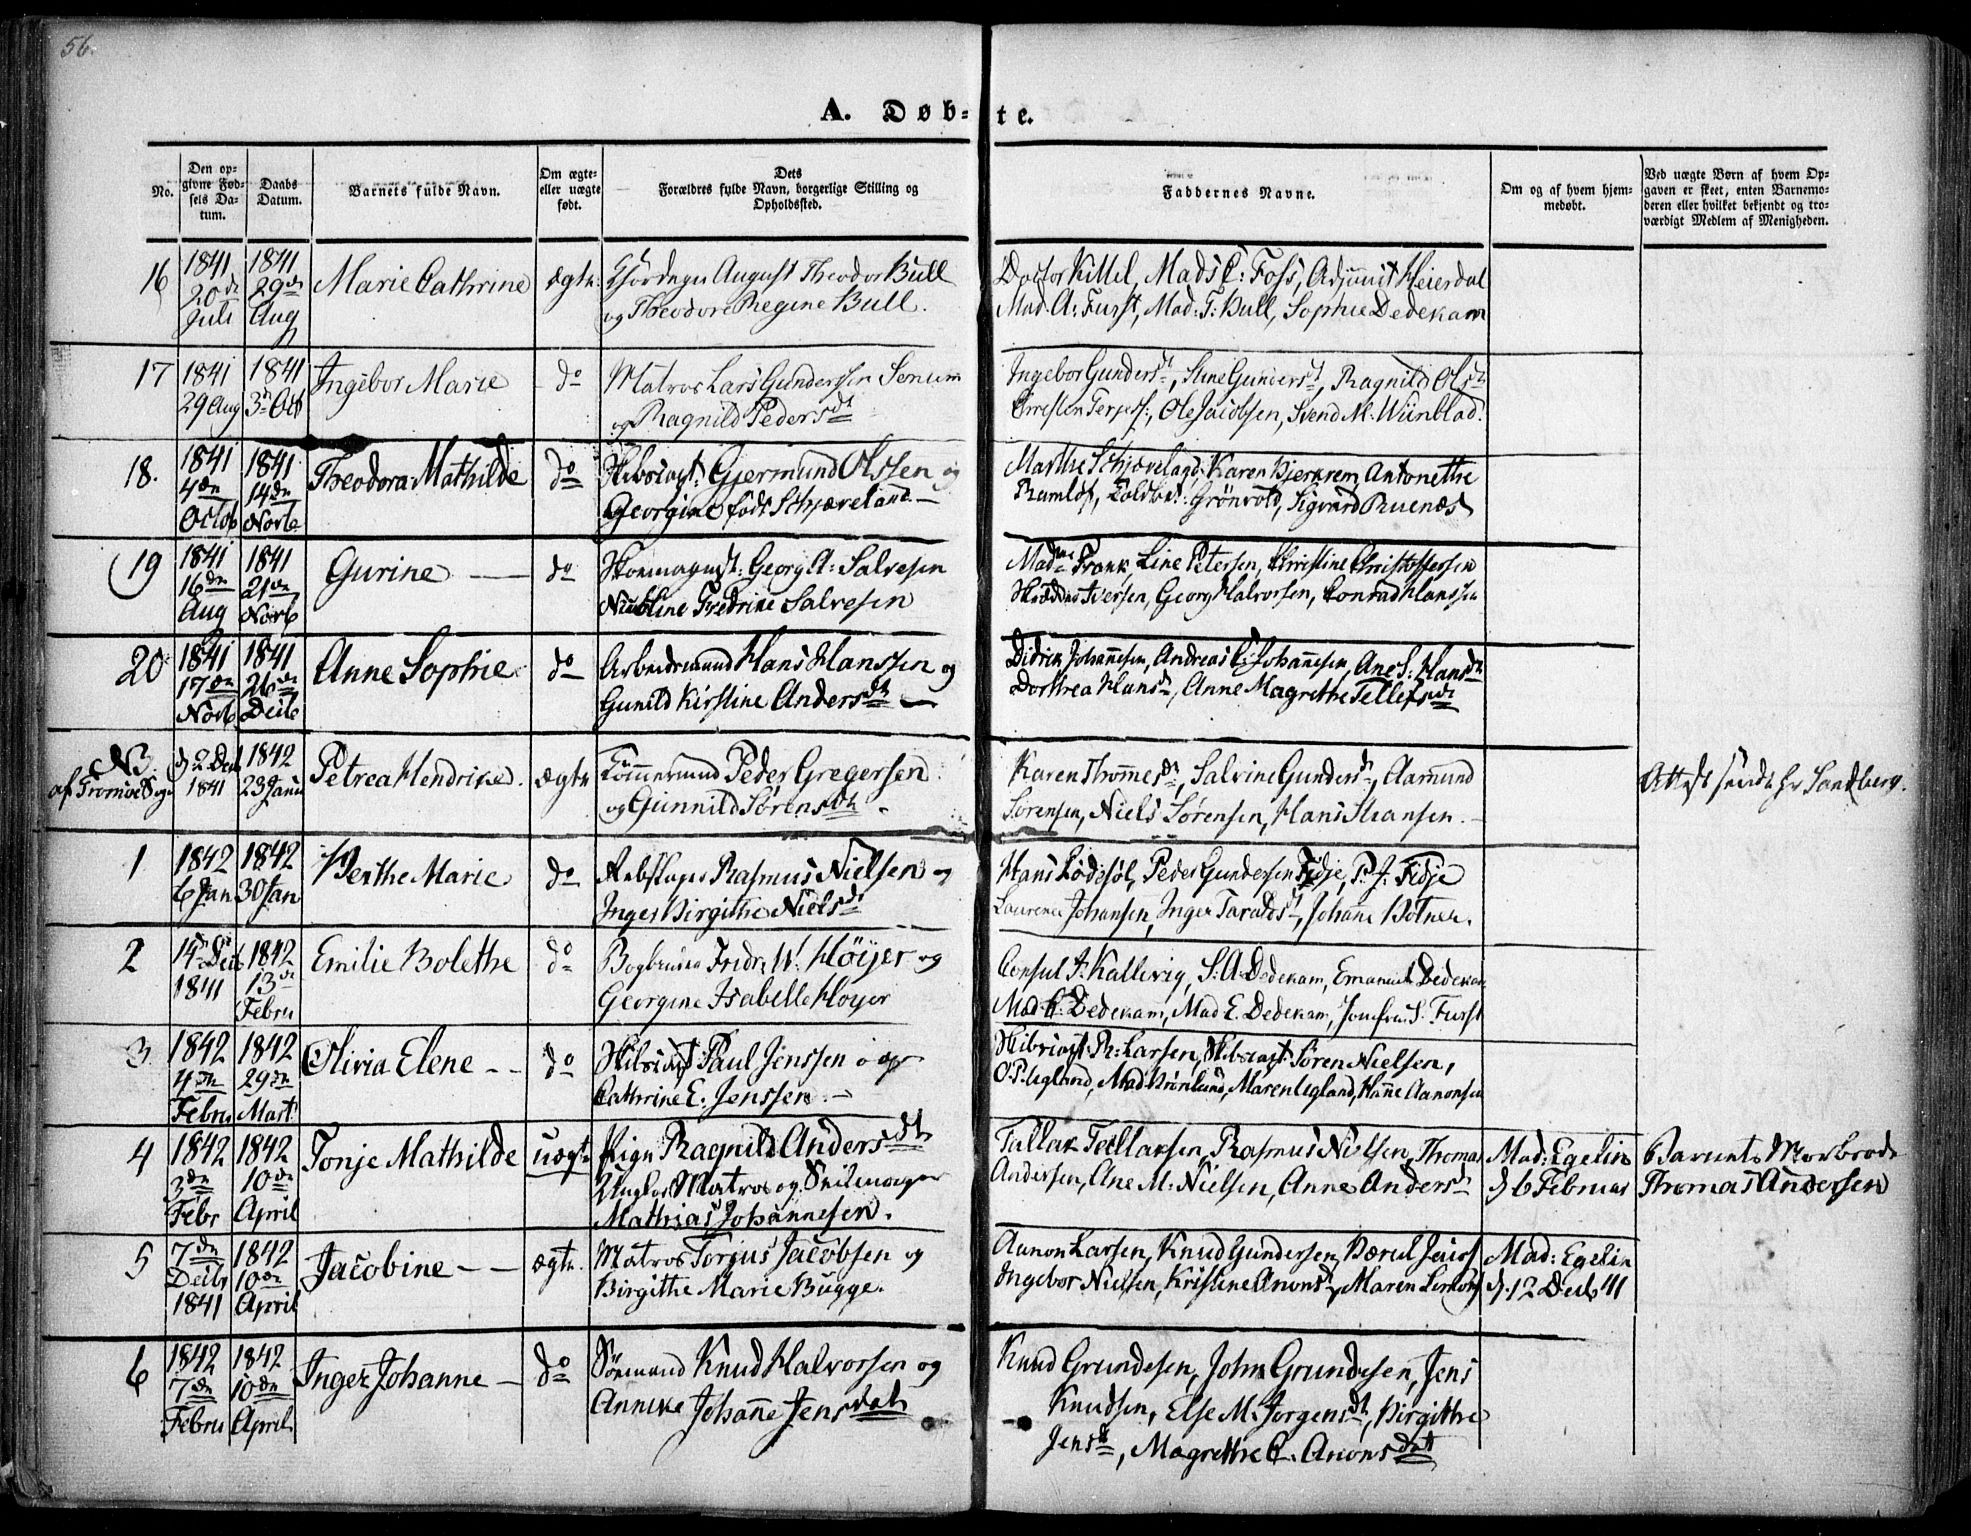 56.
A. Døb-te.
No.
Den op-
givne Fød-
sels Da-
tum.
Daabs
Datum.
Barnets fulde Navn.
Om ægte-
eller uægte
født.
Dets
Forældres fulde Navn, borgerlige Stilling og
Opholdssted.
Faddernes Navne.
Om og af hvem hjem-
medøbt.
Ved uægte Børn af hvem Op-
gaven er skeet, enten Barnemo-
deren eller hvilket bekjendt og tro-
værdigt Medlem af Menigheden.
16
1841
20de
Juli
1841
29de
Aug
Marie Cathrine
ægte
August Theodor Bull
og Theodore Regine Bull.
Doctor Kittel, Mads C: Foss, Adjunct Heierdal
Mad. A: Furst, Mad: T: Bull, Sophie Dedekam
17
1841
29 Aug
1841
3de Oct
Ingebor Marie
do
Matros Lars Gundersen Senum
og Ragnild Pedersdt
Ingebor Gundersdt, Stine Gundersdt, Ragnild Olsdt
Christen Terjess:, Ole Jacobsen, Svend M. Wiinblad.
18.
1841
4de
Octob
1841
14de
Novb
Theodora Mathilde
do
Skibscapt: Gjermund Olssen og
Georgine født Schjæveland
Marthe Schjævelagd, Karen Bjerkrem, Antonethe
Ramlof, Toldbet: Grönvold, Sigvard Ruenæs
19
1841
16de
Aug
1841
21de
Novb
Gurine
do
Skomagmst: Georg A: Salvesen
Nicoline Fredrike Salvesen
Madme Frank, Line Petersen, Christine Christoffersen
Iversen, Georg Halvorsen, Conrad Hanssen
20
1841
17de
Novb
1841
26de
Decb
Anne Sophie
do
Arbeidsmand Hans Hanssen og
Gunild Kirstine Andersdt
Didrik Johannesen, Andreas C: Johannesen, Ane S: Hansdt
Dorthea Hansdt, Anne Magrethe Tellefsdt
N3.
af Tromøe Sogn
d 2 Decb
1841
1842
23 Janu
Petrea Hendrike.
ægte
Tömmermand Peder Gregersen
og Gunnild Sørensdt
Karen Thomesdt, Salvine Gundersdt, Aamund
Sørensen, Niels Sørensen, Hans Hansen.
Attest sendt Hr Sandberg.
1
1842
6 Jan
1842
30 Jan
Berthe Marie
do
Rebslager Rasmus Nielsen og
Inger Birgithe Nielsdt
Hans Lødesöl, Peder Gundersen Fidje, P. J. Fidje
Laurence Johansen, Inger Taraldsdt, Johanne Botner.
2
14de Decb
1841
1842
13de
Febru
Emilie Bolethe
do
Fridr. W. Höyer og
Georgine Isabelle Höyer
Consul J. Kallevig, S. A. Dedekam, Emanuel Dedekam
Mad C. Dedekam, Mad E. Dedekam, Jomfru S. Furst
3.
1842
4de
Febru
1842
29de
Mart
Olivia Elene
do
Skibscapt: Paul Jenssen og
Cathrine E. Jenssen
Skibscapt: R: Larsen, Skibscapt: Sören Nielsen,
O. P. Ugland, Mad Brönlund, Maren Ugland, Hanne Aanonsen
4
1842
3de
Febr
1842
10de
April
Tonje Mathilde
uægte
Pign Ragnild Andersdt
Ungkar Matros og Seilmager
Mathias Johannesen.
Tallak Tellaksen, Rasmus Nielsen, Thomas
Andersen, Ane M. Nielsen, Anne Andersdt
Mad: Egelin
d 6 Februar
Barnets Morbroder
Thomas Andersen
5
7de
Decbr
1841
1842
10de
April
Jacobine
ægte.
Matros Torjus Jacobsen og
Birgithe Marie Bugge.
Aanon Larsen, Knud Gundersen, Bærul Jens
Ingebor Nielsen, Kristine Anonsdt, Maren
Mad: Egelin
d. 12 Decb 41
6
1842
7de
Febru
1842
10de
April
Inger Johanne
do
Sömand Knud Halvorsen og
Anneke Johanne Jensdat
Knud Grundesen, John Grundesen, Jens
Knudsen, Else M. Jorgensdt, Birgithe
Jensdt, Magrethe C. Anonsdatt